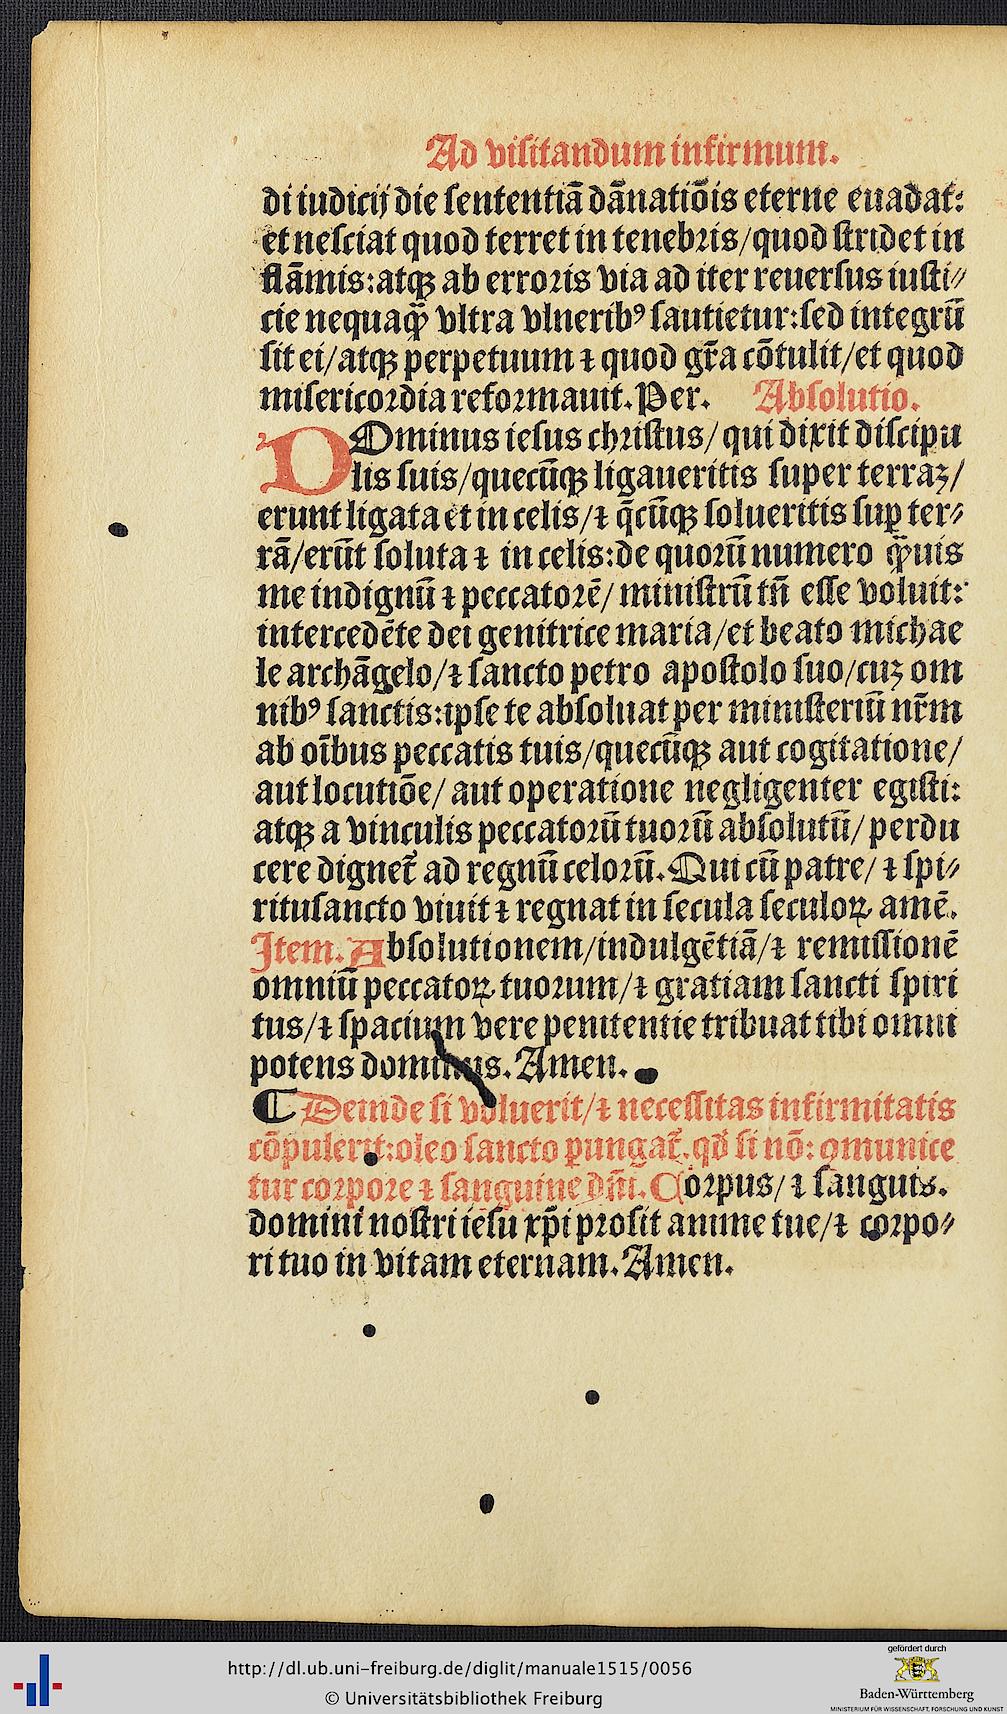 Ad visitandum infirmum.
di iudicij die sententiā dānatiōis eterne euadat:
et nesciat quod terret in tenebris/quod stridet in
flāmis:atqꝫ ab erroris via ad iter reuersus iusti⸗
cie nequaq̄ȝ vltra vlneribꝰ sautietur:sed integrū
sit ei/atqꝫ perpetuum ⁊ quod gr̄a cōtulit/et quod
misericordia reformauit. Per. Absolutio.
DOminus iesus christus/ qui dixit discipu
lis suis/quecūqꝫ ligaueritis super terraꝫ/
erunt ligata et in celis/⁊ q̄cūqꝫ solueritis suꝑ ter⸗
rā/erūt soluta ⁊ in celis:de quorū numero q̄ȝuis
me indignū ⁊ peccatorē/ ministrū tn̄ esse voluit:
intercedēte dei genitrice maria/et beato michae
le archāgelo/⁊ sancto petro apostolo suo/cuꝫ om
nibꝰ sanctis:ipse te absoluat per ministeriū nr̄m
ab oībus peccatis tuis/quecūqꝫ aut cogitatione/
aut locutiōe/ aut operatione negligenter egisti:
atqꝫ a vinculis peccatorū tuorū absolutū/ perdu
cere dignet᷑ ad regnū celorū. Qui cū patre/ ⁊ spi⸗
ritusancto viuit ⁊ regnat in secula seculoꝝ amē.
Item. Absolutionem/indulgētiā/⁊ remissionē
omniū peccatoꝝ tuorum/⁊ gratiam sancti spiri
tus/⁊ spacium vere penitentie tribuat tibi omni
potens dominus. Amen.
¶ Deinde si voluerit/⁊ necessitas infirmitatis
cōpulerit:oleo sancto ꝑungat᷑. qd̄ si nō: ꝯmunice
tur corpore ⁊ sanguine dn̄i. Corpus/ ⁊ sanguis.
domini nostri iesu xp̄i prosit anime tue/⁊ corpo⸗
ri tuo in vitam eternam. Amen.
http://dl.ub.uni-freiburg.de/diglit/manuale1515/0056
© Universitätsbibliothek Freiburg
gefördert durch
Baden-Württemberg
MINISTERIUM FÜR WISSENSCHAFT, FORSCHUNG UND KUNST